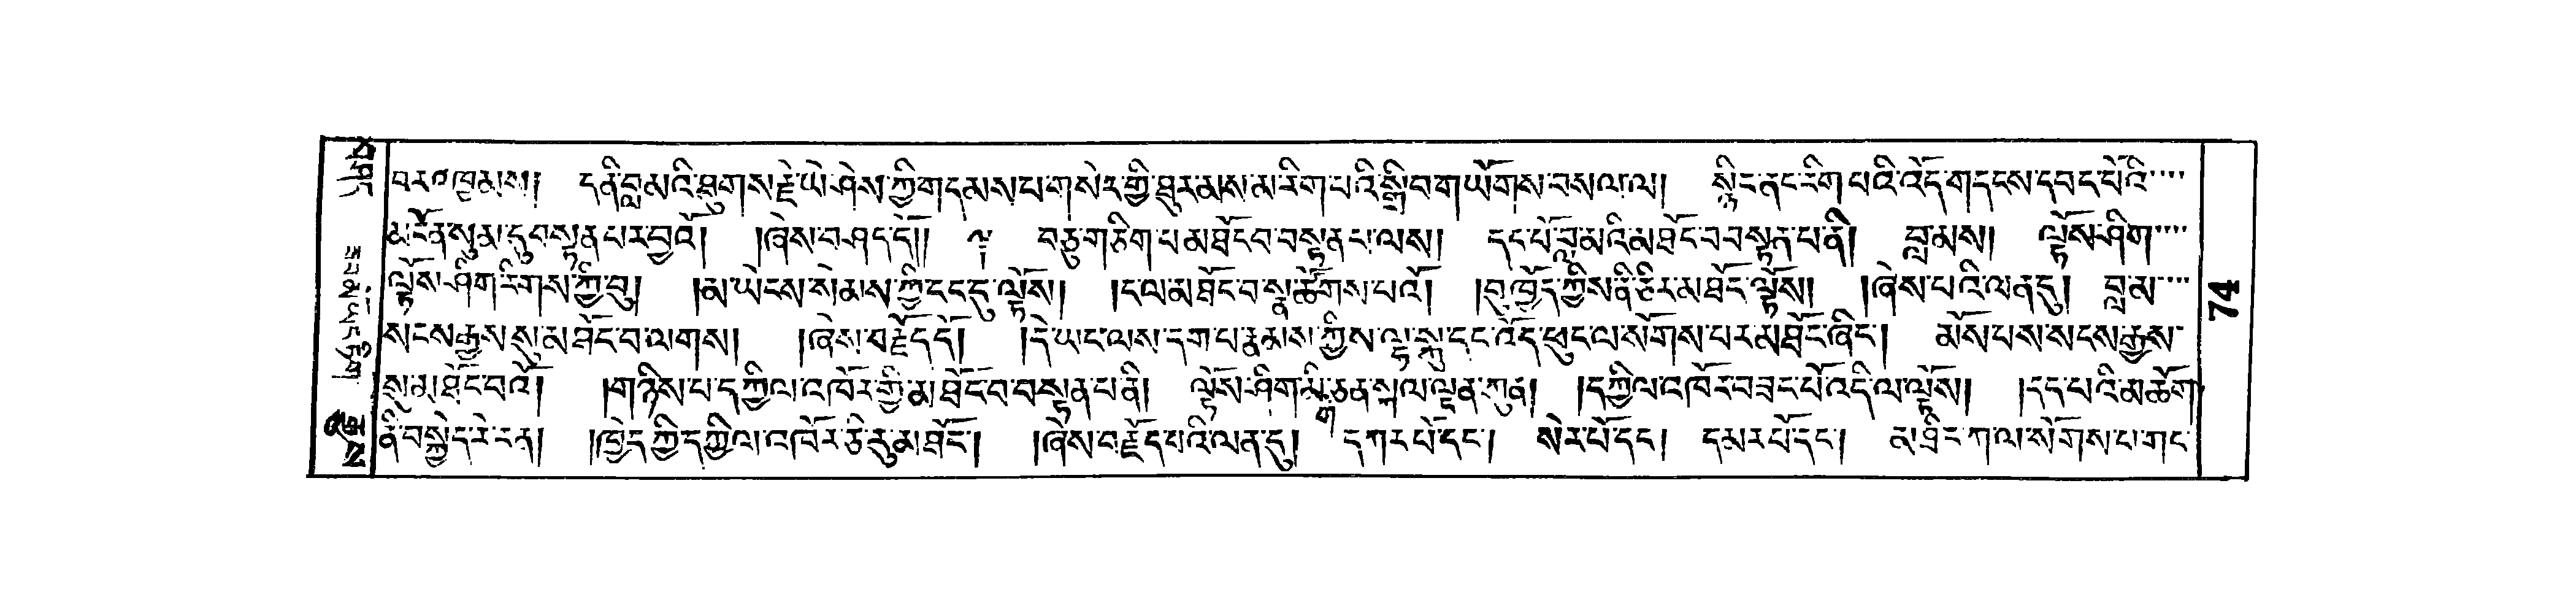 བར༠ཁྱམས། ད་ནི་བླ་མའི་ཐུགས་རྗེ་ཡེ་ཤེས་ཀྱི་གདམས་པ་གསེར་གྱི་ཐུར་མས་མ་རིག་པའི་སྒྲིབ་གཡོགས་བསལ་ལ། སྙིང་ནང་རིག་པའི་འོད་གདངས་དབང་པོའི་
མངོན་སུམ་དུ་བསྟན་པར་བྱའོ། །ཞེས་བཤད་དོ།། བཅུ་གཅིག་པ་མཐོང་བ་བསྟན་པ་ལས། དང་པོ་བླ་མའི་མཐོང་བ་བསྟན་པ་ནི། བླ་མས། ལྟོས་ཤིག་
ལྟོས་ཤིག་རིགས་ཀྱི་བུ། །མ་ཡེངས་སེམས་ཀྱི་ངང་དུ་ལྟོས། །ངལ་མཐོང་བ་སྣ་ཚོགས་པའོ། །བུ་ཁྱོད་ཀྱིས་ནི་ཅིར་མཐོང་ལྟོས། །ཞེས་པའི་ལན་དུ། བླ་མ་
སངས་རྒྱས་སུ་མཐོང་བ་ལགས། །ཞེས་བརྗོད་དོ། །དེ་ཡང་ལས་དག་པ་རྣམས་ཀྱིས་ལྷ་སྐུ་དང་འོད་ཕུང་ལ་སོགས་པར་མཐོང་ཞིང་། མོས་པས་སངས་རྒྱས་
སུ་མཐོང་བའོ། །གཉིས་པ་དཀྱིལ་འཁོར་གྱི་མཐོང་བ་བསྟན་པ་ནི། ལྟོས་ཤིག་སྙིང་ཅན་སྐལ་ལྡན་ཀུན། །དཀྱིལ་འཁོར་བཟང་པོ་འདི་ལ་ལྟོས། །དད་པའི་མཆོག་
ནི་བསྐྱེད་རེ་ངན། །ཁྱེད་ཀྱི་དཀྱིལ་འཁོར་ཅི་རུ་མཐོང་། །ཞེས་བརྗོད་པའི་ལན་དུ། དཀར་པོ་དང་། སེར་པོ་དང་། དམར་པོ་དང་། ན་ཐིང་ཀ་ལ་སོགས་པ་གང་